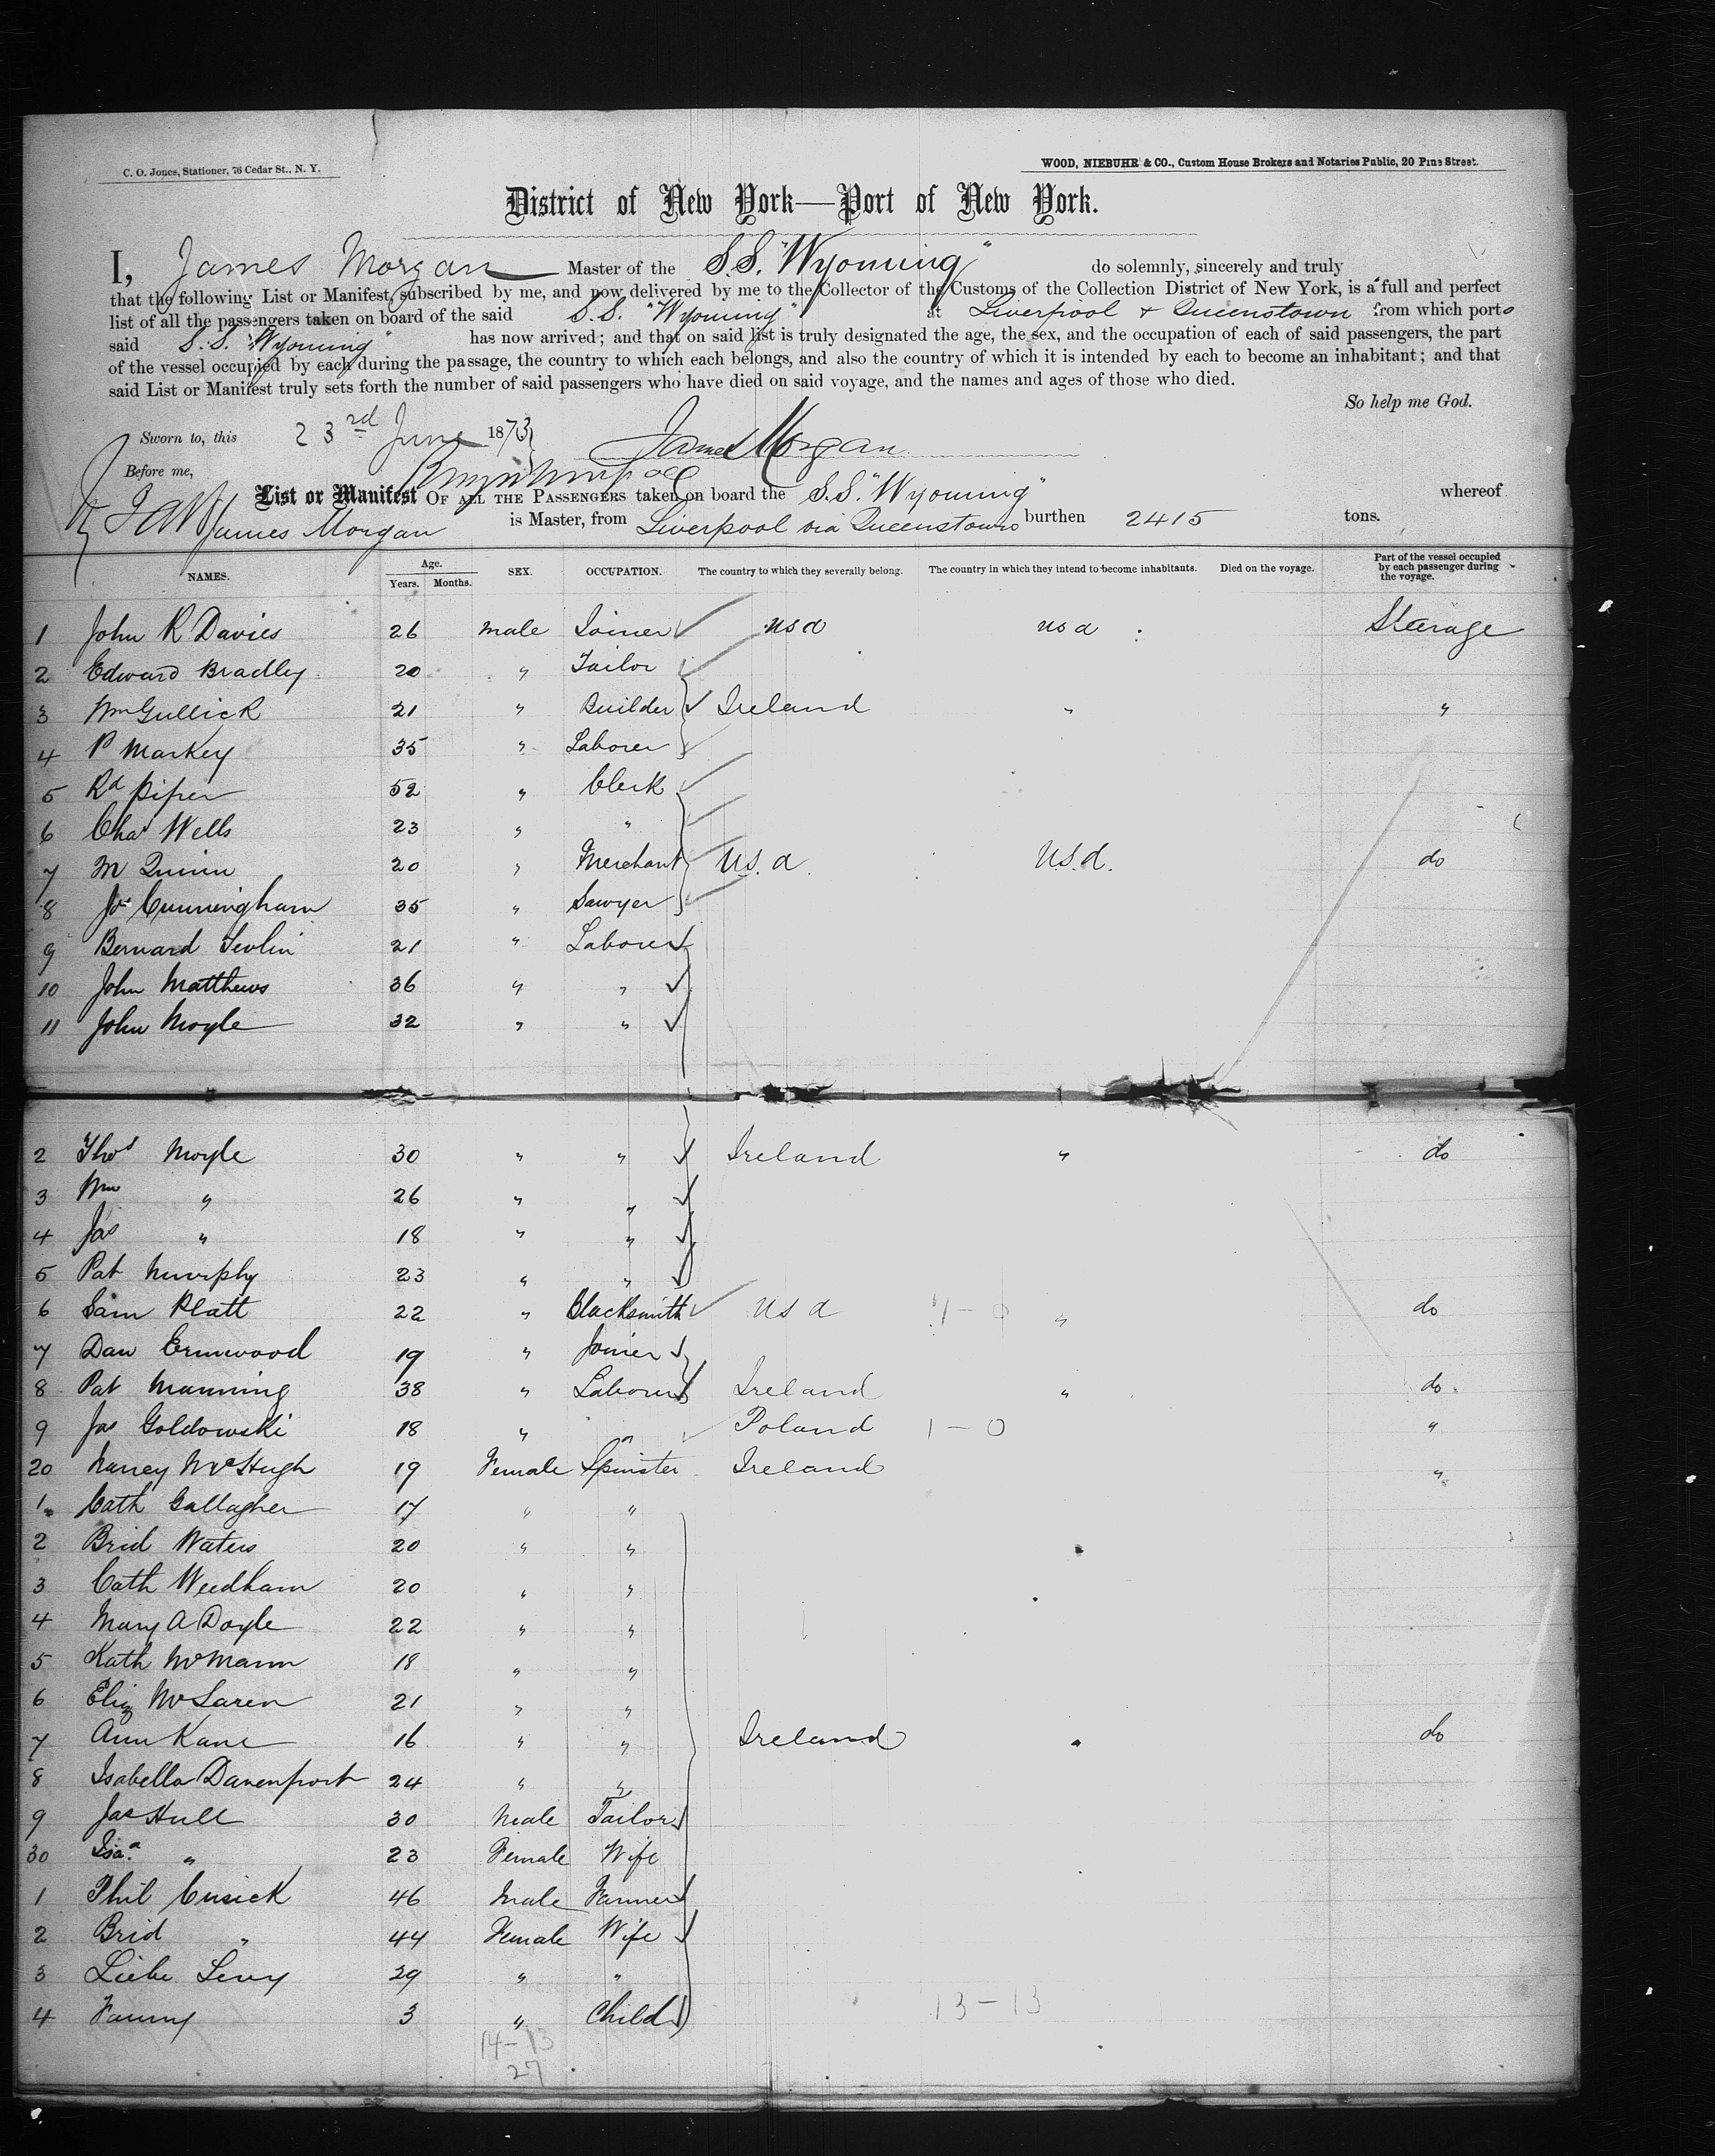 C. O. Jones, Stationer, 76 Cedar St., N. Y.
WOOD, NIEBUHR & CO., Custom House Brokers and Notaries Public, 20 Pine Street.
District of New York—Port of New York.
I, James Morgan Master of the S.S. "Wyoming" do solemnly, sincerely and truly
that the following List or Manifest, subscribed by me, and now delivered by me to the Collector of the Customs of the Collection District of New York, is a full and perfect
list of all the passengers taken on board of the said S.S. "Wyoming" at Liverpool + Queenstown from which ports
said S.S. "Wyoming" has now arrived; and that on said list is truly designated the age, the sex, and the occupation of each of said passengers, the part
of the vessel occupied by each during the passage, the country to which each belongs, and also the country of which it is intended by each to become an inhabitant; and that
said List or Manifest truly sets forth the number of said passengers who have died on said voyage, and the names and ages of those who died.
So help me God.
Sworn to, this 23rd June 1873 James Morgan
Before me,
List or Manifest OF ALL THE PASSENGERS taken on board the S.S. "Wyoming" whereof
James Morgan is Master, from Liverpool via Queenstown burthen 2415 tons.
NAMES. Age. Years. Months. SEX. OCCUPATION. The country to which they severally belong. The country in which they intend to become inhabitants. Died on the voyage. Part of the vessel occupied by each passenger during the voyage.
1 John R Davies 26 male Joiner usa usa Steerage
2 Edward Bradley 20 " Tailor
3 Wm Gullick 21 " Builder Ireland " "
4 P Markey 35 " Laborer
5 Rd Piper 52 " Clerk
6 Chas Wells 23 " "
7 M Quinn 20 " Merchant U.S.a. U.S.a. do
8 Jas Cunningham 35 " Sawyer
9 Bernard Tevlin 21 " Laborer
10 John Matthews 36 " "
11 John Moyle 32 " "
2 Thos Moyle 30 " " Ireland " do
3 Wm " 26 " "
4 Jas " 18 " "
5 Pat Murphy 23 " "
6 Sam Platt 22 " Blacksmith usa 7-0 " do
7 Dan 19 " Joiner
8 Pat Manning 38 " Laborer Ireland " do
9 Jas Goldowski 18 " " Poland 1-0 "
20 Nancy McHugh 19 Female Spinster Ireland "
1 Cath Gallagher 17 " "
2 Brid Waters 20 " "
3 Cath Weedham 20 " "
4 Mary A Doyle 22 " "
5 Kath McMann 18 " "
6 Eliz McLaren 21 " "
7 Ann Kane 16 " " Ireland " do
8 Isabella Davenport 24 " "
9 Jas Hull 30 Male Tailor
30 Isa. " 23 Female Wife
1 Phil Cusick 46 Male Farmer
2 Brid " 44 Female Wife
3 Liebe Levy 29 " "
4 Fanny 3 " Child 13-13
14-13
27